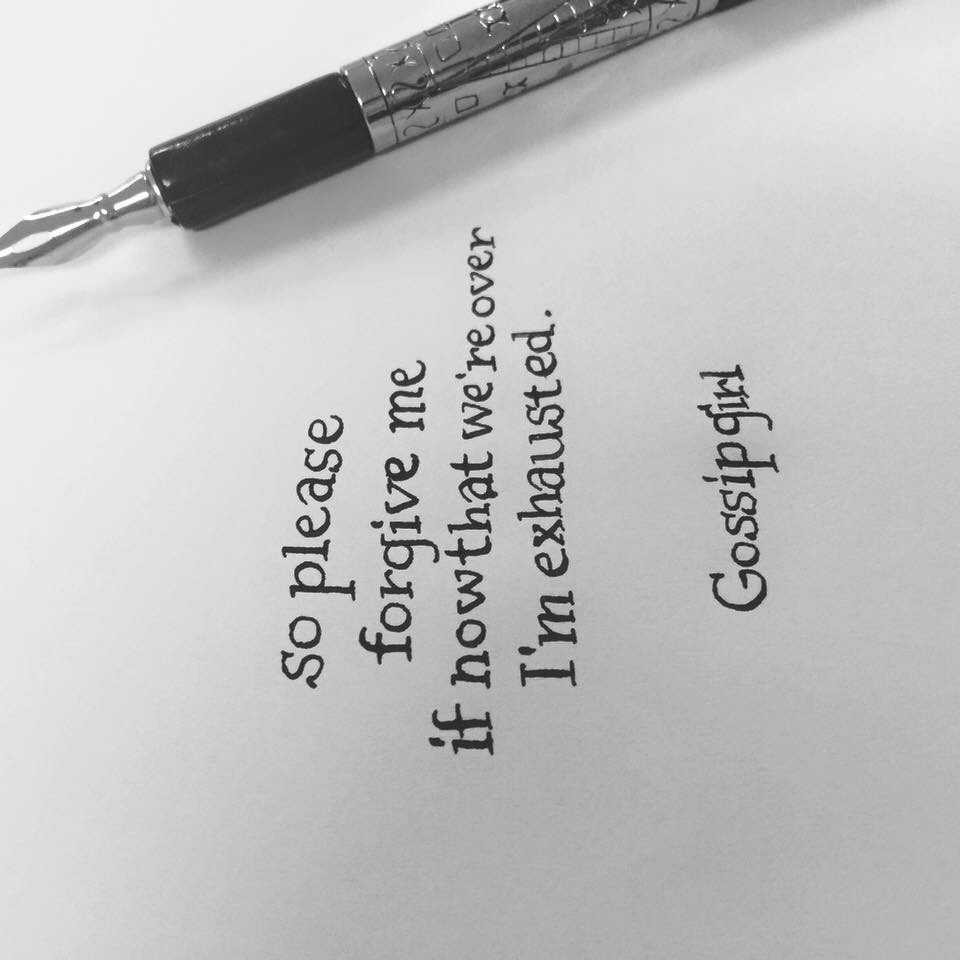 So please
forgive me
if now that we're over
I'm exhausted.
Gossip girl